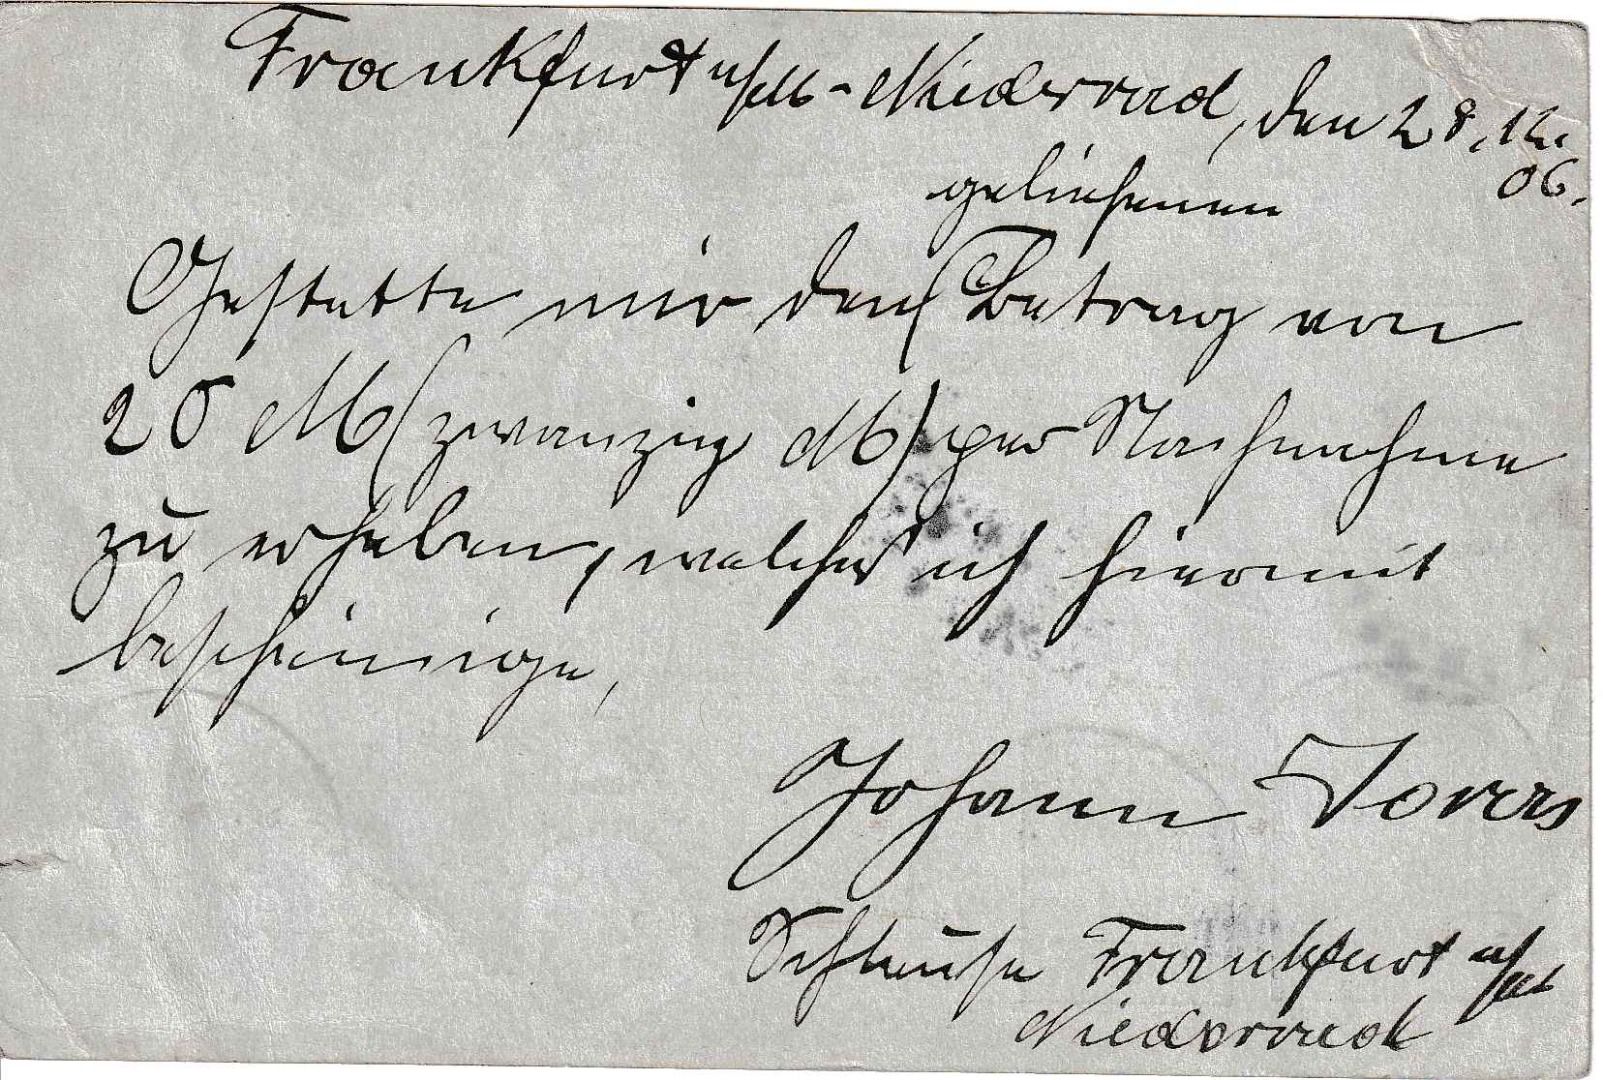 Frankfurt a/M-Niederrad, den 28.12.
06.
geliehenen
Gestatte mir den Betrag von
20 M (zwanzig M) per Nachnahme
zu erheben, welches ich hiermit
bescheinige,
Johann
Schleuse Frankfurt a/M
Niederrad